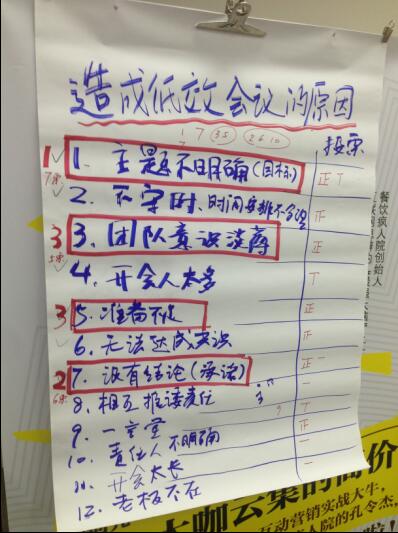 造成低效会议的原因
1 7 35 2 6 10
投票
1 1. 主题不明确(目标) 正丅
7票
2. 不守时、时间安排不合理 正
3 3. 团队意识淡薄 正
5票
4. 开会人太多 丅
3 5. 准备不足 正
6. 无法达成共识 正
2 7. 没有结论(承诺) 正一
6票
8. 相互推诿责任 一
9. 一言堂 丅
10. 责任人不明确 正
11. 开会太长 一
12. 老板不在 一
餐饮疯人院创始人
大咖云集的高价
互动营销实战大牛,
人院的孔令杰,